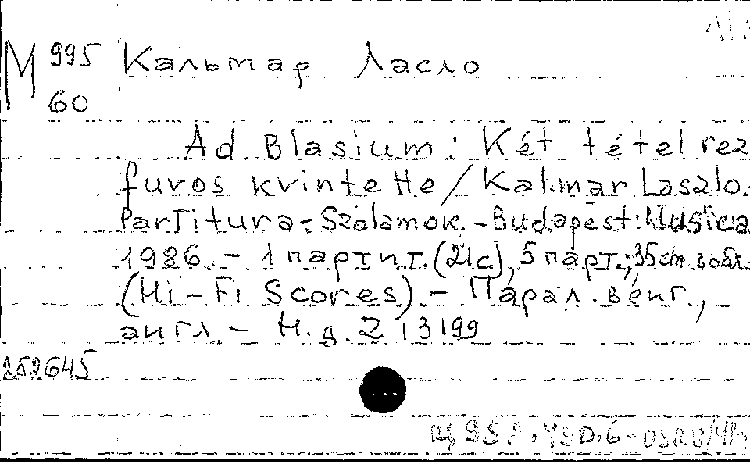 М 995 Кальмар Ласло
60
Ad Blasium: Két tétel rez
fuvos kvintette / Kalmar Laszlo.
Partitura = Szolamok. - Budapest: Musica
1986. - 1 партит. (21 с), 5 парт.; 35 cm
(Hi-Fi Scores). - Парал. венг.,
англ. - Н. д. Z 13199
252645